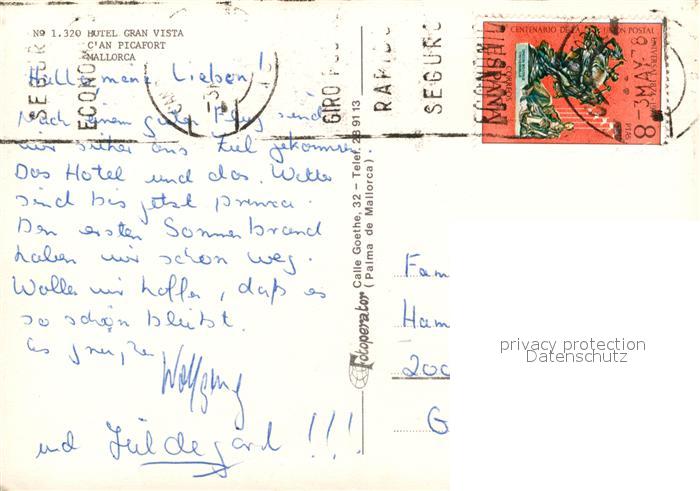 Nº 1.320 HOTEL GRAN VISTA
C'AN PICAFORT
MALLORCA
Hallo meine Lieben!
Nach einem guten Flug sind
wir sicher ans Ziel gekommen.
Das Hotel und das Wetter
sind bis jetzt prima.
Den ersten Sonnenbrand
haben wir schon weg.
Wollen wir hoffen, daß es
so schön bleibt.
Es grüßen
Wolfgang
und Hildegard !!!
Fotoperator Calle Goethe, 32 - Telef. 28 9113
(Palma de Mallorca)
SEGURO
ECONOM
GIRO POS
RAPIDO
SEGURO
ECONOMI
CENTENARIO DE LA UNION POSTAL
UNIVERSAL
CORREOS
ESPAÑA
8 PTA
-3 MAY. 78
Fam
Ham
200
G
privacy protection
Datenschutz